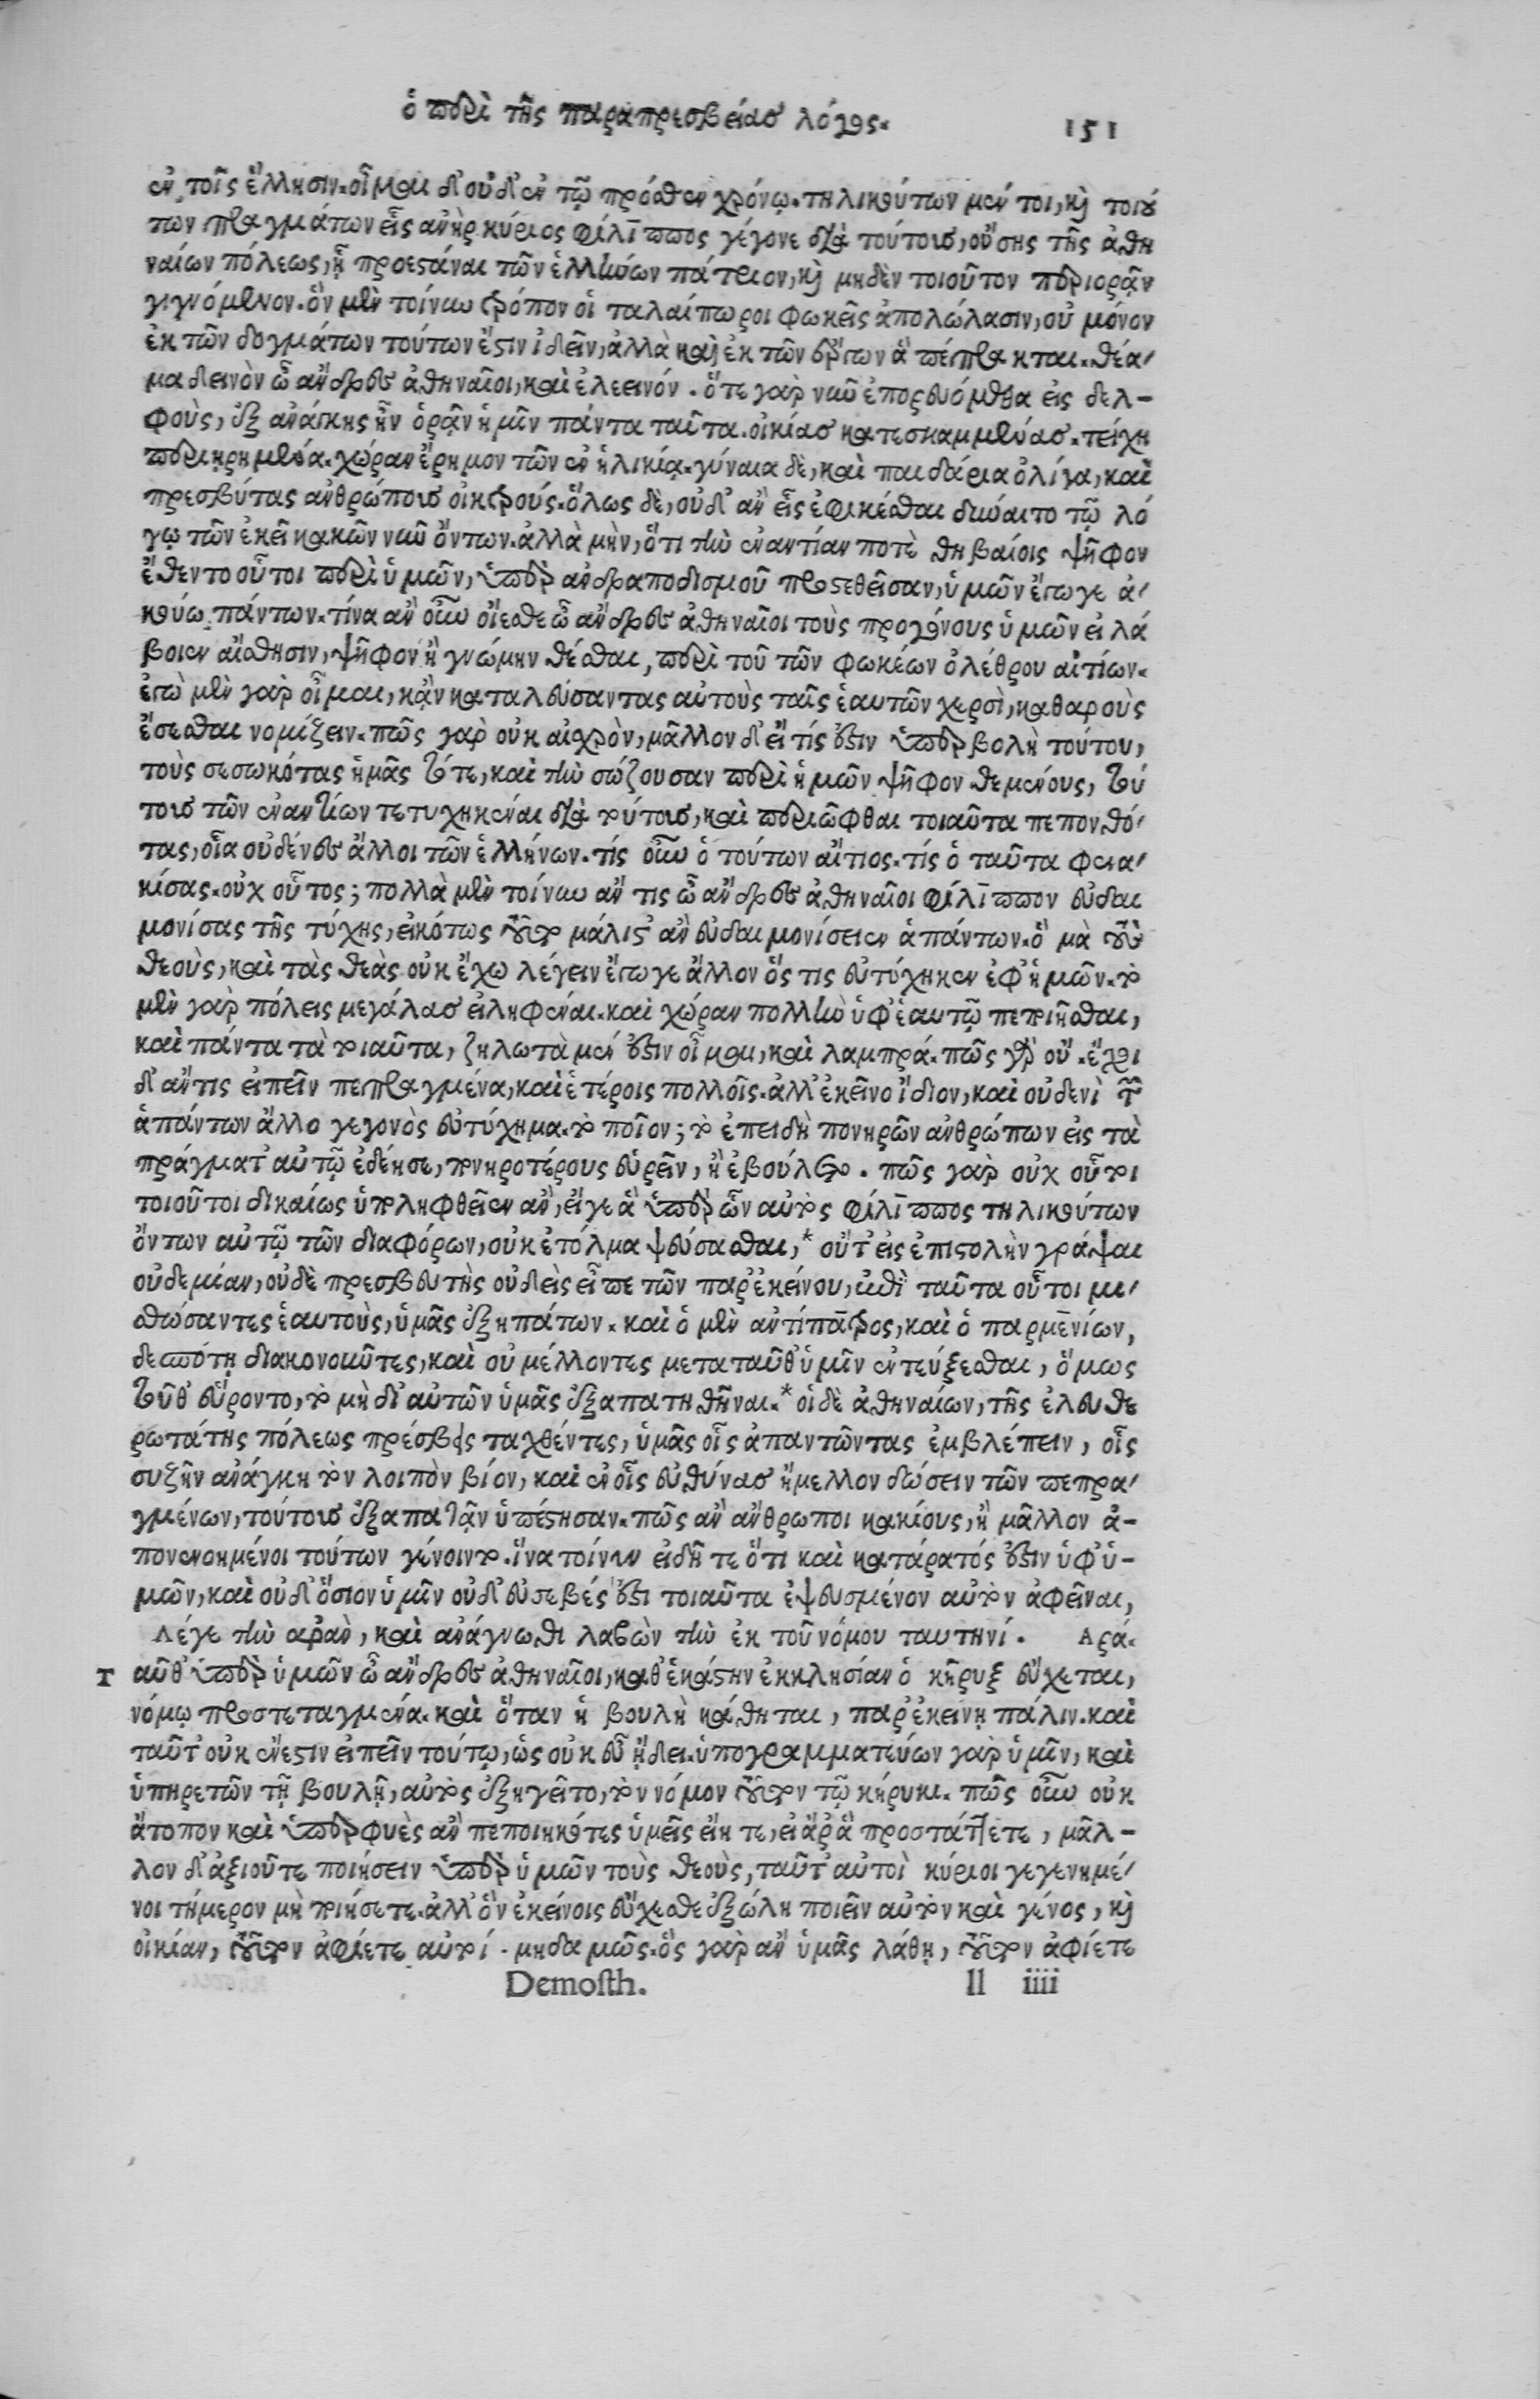 ὁ περὶ τῆς παραπρεσβείας λόγος. 151
ἐν τοῖς ἕλλησιν. οἶμαι δ' οὐδ' ἐν τῷ πρόσθεν χρόνῳ. τηλικούτων μέν τοι, καὶ τοιού
των πραγμάτων εἷς ἀνὴρ κύριος φίλιππος γέγονε διὰ τούτους, οὔσης τῆς ἀθη
ναίων πόλεως, ᾗ προεστάναι τῶν ἑλλήνων πάτριον, καὶ μηδὲν τοιοῦτον περιορᾷν
γιγνόμενον. ὃν μὲν τοίνυν τρόπον οἱ ταλαίπωροι φωκεῖς ἀπολώλασιν, οὐ μόνον
ἐκ τῶν δογμάτων τούτων ἔστιν ἰδεῖν, ἀλλὰ καὶ ἐκ τῶν ἔργων ἃ πέπρακται. θέα-
μα δεινὸν ὦ ἄνδρες ἀθηναῖοι, καὶ ἐλεεινόν. ὅτε γὰρ νῦν ἐπορευόμεθα εἰς δελ-
φοὺς, ἐξ ἀνάγκης ἦν ὁρᾷν ἡμῖν πάντα ταῦτα. οἰκίας κατεσκαμμένας. τείχη
περιῃρημένα. χώραν ἔρημον τῶν ἐν ἡλικίᾳ. γύναια δὲ, καὶ παιδάρια ὀλίγα, καὶ
πρεσβύτας ἀνθρώπους οἰκτρούς. ὅλως δὲ, οὐδ' ἂν εἷς ἐφικέσθαι δύναιτο τῷ λό
γῳ τῶν ἐκεῖ κακῶν νῦν ὄντων. ἀλλὰ μὴν, ὅτι τὴν ἐναντίαν ποτὲ θηβαίοις ψῆφον
ἔθεντο οὗτοι περὶ ὑμῶν, ὑπὲρ ἀνδραποδισμοῦ προτεθεῖσαν, ὑμῶν ἔγωγε ἀ-
κούω πάντων. τίνα ἂν οὖν οἴεσθε ὦ ἄνδρες ἀθηναῖοι τοὺς προγόνους ὑμῶν εἰ λά
βοιεν αἴσθησιν, ψῆφον ἢ γνώμην θέσθαι, περὶ τοῦ τῶν φωκέων ὀλέθρου αἰτίων.
ἐγὼ μὲν γὰρ οἶμαι, κᾂν καταλεύσαντας αὐτοὺς ταῖς ἑαυτῶν χερσὶ, καθαροὺς
ἔσεσθαι νομίζειν. πῶς γὰρ οὐκ αἰσχρὸν, μᾶλλον δ' εἴ τίς ἐστιν ὑπερβολὴ τούτου,
τοὺς σεσωκότας ἡμᾶς τότε, καὶ τὴν σώζουσαν περὶ ἡμῶν ψῆφον θεμένους, τού
τους τῶν ἐναντίων τετυχηκέναι διὰ τούτους, καὶ περιῶφθαι τοιαῦτα πεπονθό-
τας, οἷα οὐδένες ἄλλοι τῶν ἑλλήνων. τίς οὖν ὁ τούτων αἴτιος. τίς ὁ ταῦτα φενα-
κίσας. οὐχ οὗτος; πολλὰ μὲν τοίνυν ἄν τις ὦ ἄνδρες ἀθηναῖοι φίλιππον εὐδαι
μονίσας τῆς τύχης, εἰκότως τοῦτο μάλιστ' ἂν εὐδαιμονίσειεν ἁπάντων. ὃ μὰ τοὺς
θεοὺς, καὶ τὰς θεὰς οὐκ ἔχω λέγειν ἔγωγε ἄλλον ὅς τις εὐτύχηκεν ἐφ' ἡμῶν. τὸ
μὲν γὰρ πόλεις μεγάλας εἰληφέναι. καὶ χώραν πολλὴν ὑφ' ἑαυτῷ πεποιῆσθαι,
καὶ πάντα τὰ τοιαῦτα, ζηλωτὰ μέν ἐστιν οἶμαι, καὶ λαμπρά. πῶς γὰρ οὔ. ἔχοι
δ' ἄν τις εἰπεῖν πεπραγμένα, καὶ ἑτέροις πολλοῖς. ἀλλ' ἐκεῖνο ἴδιον, καὶ οὐδενὶ τῶν
ἁπάντων ἄλλο γεγονὸς εὐτύχημα. τὸ ποῖον; τὸ ἐπειδὴ πονηρῶν ἀνθρώπων εἰς τὰ
πράγματ' αὐτῷ ἐδέησε, πονηροτέρους εὑρεῖν, ἢ ἐβούλετο. πῶς γὰρ οὐχ οὗτοι
τοιοῦτοι δικαίως ὑποληφθεῖεν ἂν, εἴγε ἃ ὑπὲρ ὧν αὐτὸς φίλιππος τηλικούτων
ὄντων αὐτῷ τῶν διαφόρων, οὐκ ἐτόλμα ψεύσασθαι, * οὔτ' εἰς ἐπιστολὴν γράψαι
οὐδεμίαν, οὐδὲ πρεσβευτὴς οὐδεὶς εἶπε τῶν παρ' ἐκείνου, ἐπὶ ταῦτα οὗτοι μι-
σθώσαντες ἑαυτοὺς, ὑμᾶς ἐξηπάτων. καὶ ὁ μὲν ἀντίπατρος, καὶ ὁ παρμενίων,
δεσπότῃ διακονοῦντες, καὶ οὐ μέλλοντες μεταταῦθ' ὑμῖν ἐντεύξεσθαι, ὅμως
τοῦθ' εὕροντο, τὸ μὴ δι' αὐτῶν ὑμᾶς ἐξαπατηθῆναι. * οἱ δὲ ἀθηναίων, τῆς ἐλευθε
ρωτάτης πόλεως πρέσβεις ταχθέντες, ὑμᾶς οἷς ἀπαντῶντας ἐμβλέπειν, οἷς
συζῆν ἀνάγκη τὸν λοιπὸν βίον, καὶ ἐν οἷς εὐθύνας ἤμελλον δώσειν τῶν πεπρα-
γμένων, τούτους ἐξαπατᾷν ὑπέστησαν. πῶς ἂν ἄνθρωποι κακίους, ἢ μᾶλλον ἀ-
πονενοημένοι τούτων γένοιντο. ἵνα τοίνυν εἰδῆτε ὅτι καὶ κατάρατός ἐστιν ὑφ' ὑ-
μῶν, καὶ οὐδ' ὅσιον ὑμῖν οὐδ' εὐσεβές ἐστι τοιαῦτα ἐψευσμένον αὐτὸν ἀφεῖναι,
λέγε τὴν ἀρὰν, καὶ ἀνάγνωθι λαβὼν τὴν ἐκ τοῦ νόμου ταυτηνί. Ἀρά.
Ταῦθ' ὑπὲρ ὑμῶν ὦ ἄνδρες ἀθηναῖοι, καθ' ἑκάστην ἐκκλησίαν ὁ κῆρυξ εὔχεται,
νόμῳ προστεταγμένα. καὶ ὅταν ἡ βουλὴ κάθηται, παρ' ἐκείνῃ πάλιν. καὶ
ταῦτ' οὐκ ἔνεστιν εἰπεῖν τούτῳ, ὡς οὐκ εὖ ᾔδει. ὑπογραμματεύων γὰρ ὑμῖν, καὶ
ὑπηρετῶν τῇ βουλῇ, αὐτὸς ἐξηγεῖτο, τὸν νόμον τοῦτον τῷ κήρυκι. πῶς οὖν οὐκ
ἄτοπον καὶ ὑπερφυὲς ἂν πεποιηκότες ὑμεῖς εἴητε, εἰ ἄρ' ἃ προστάττετε, μᾶλ-
λον δ' ἀξιοῦτε ποιήσειν ὑπὲρ ὑμῶν τοὺς θεοὺς, ταῦτ' αὐτοὶ κύριοι γεγενημέ-
νοι τήμερον μὴ ποιήσετε. ἀλλ' ὃν ἐκείνοις εὔχεσθε ἐξώλη ποιεῖν αὐτὸν καὶ γένος, καὶ
οἰκίαν, τοῦτον ἀφίετε αὐτοί. μηδαμῶς. ὃς γὰρ ἂν ὑμᾶς λάθῃ, τοῦτον ἀφίετε
Demosth. ll iiii